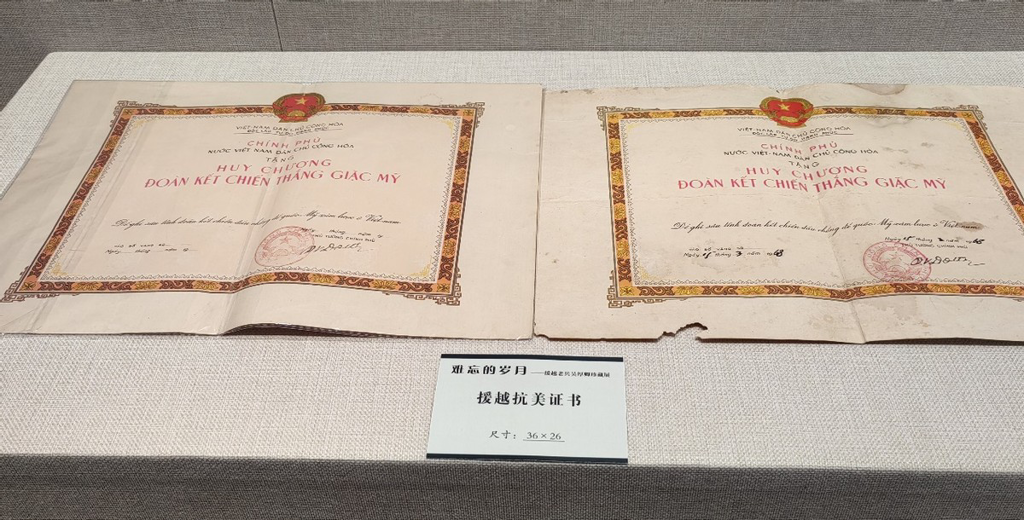 VIỆT-NAM DÂN CHỦ CỘNG HÒA
ĐỘC LẬP TỰ DO HẠNH PHÚC
CHÍNH PHỦ
NƯỚC VIỆT-NAM DÂN CHỦ CỘNG HÒA
TẶNG
HUY CHƯƠNG
ĐOÀN KẾT CHIẾN THẮNG GIẶC MỸ
Để ghi sâu tình đoàn kết chiến đấu chống đế quốc Mỹ xâm lược ở Việt-nam
VÀO SỔ VÀNG SỐ
Ngày tháng năm
THỦ TƯỚNG CHÍNH PHỦ
VIỆT-NAM DÂN CHỦ CỘNG HÒA
ĐỘC LẬP TỰ DO HẠNH PHÚC
CHÍNH PHỦ
NƯỚC VIỆT-NAM DÂN CHỦ CỘNG HÒA
TẶNG
HUY CHƯƠNG
ĐOÀN KẾT CHIẾN THẮNG GIẶC MỸ
Để ghi sâu tình đoàn kết chiến đấu chống đế quốc Mỹ xâm lược ở Việt-nam
Ngày tháng 3 năm 1968
VÀO SỔ VÀNG SỐ
THỦ TƯỚNG CHÍNH PHỦ
Ngày tháng 3 năm 1968
难忘的岁月——援越老兵吴厚卿珍藏展
援越抗美证书
尺寸：36×26